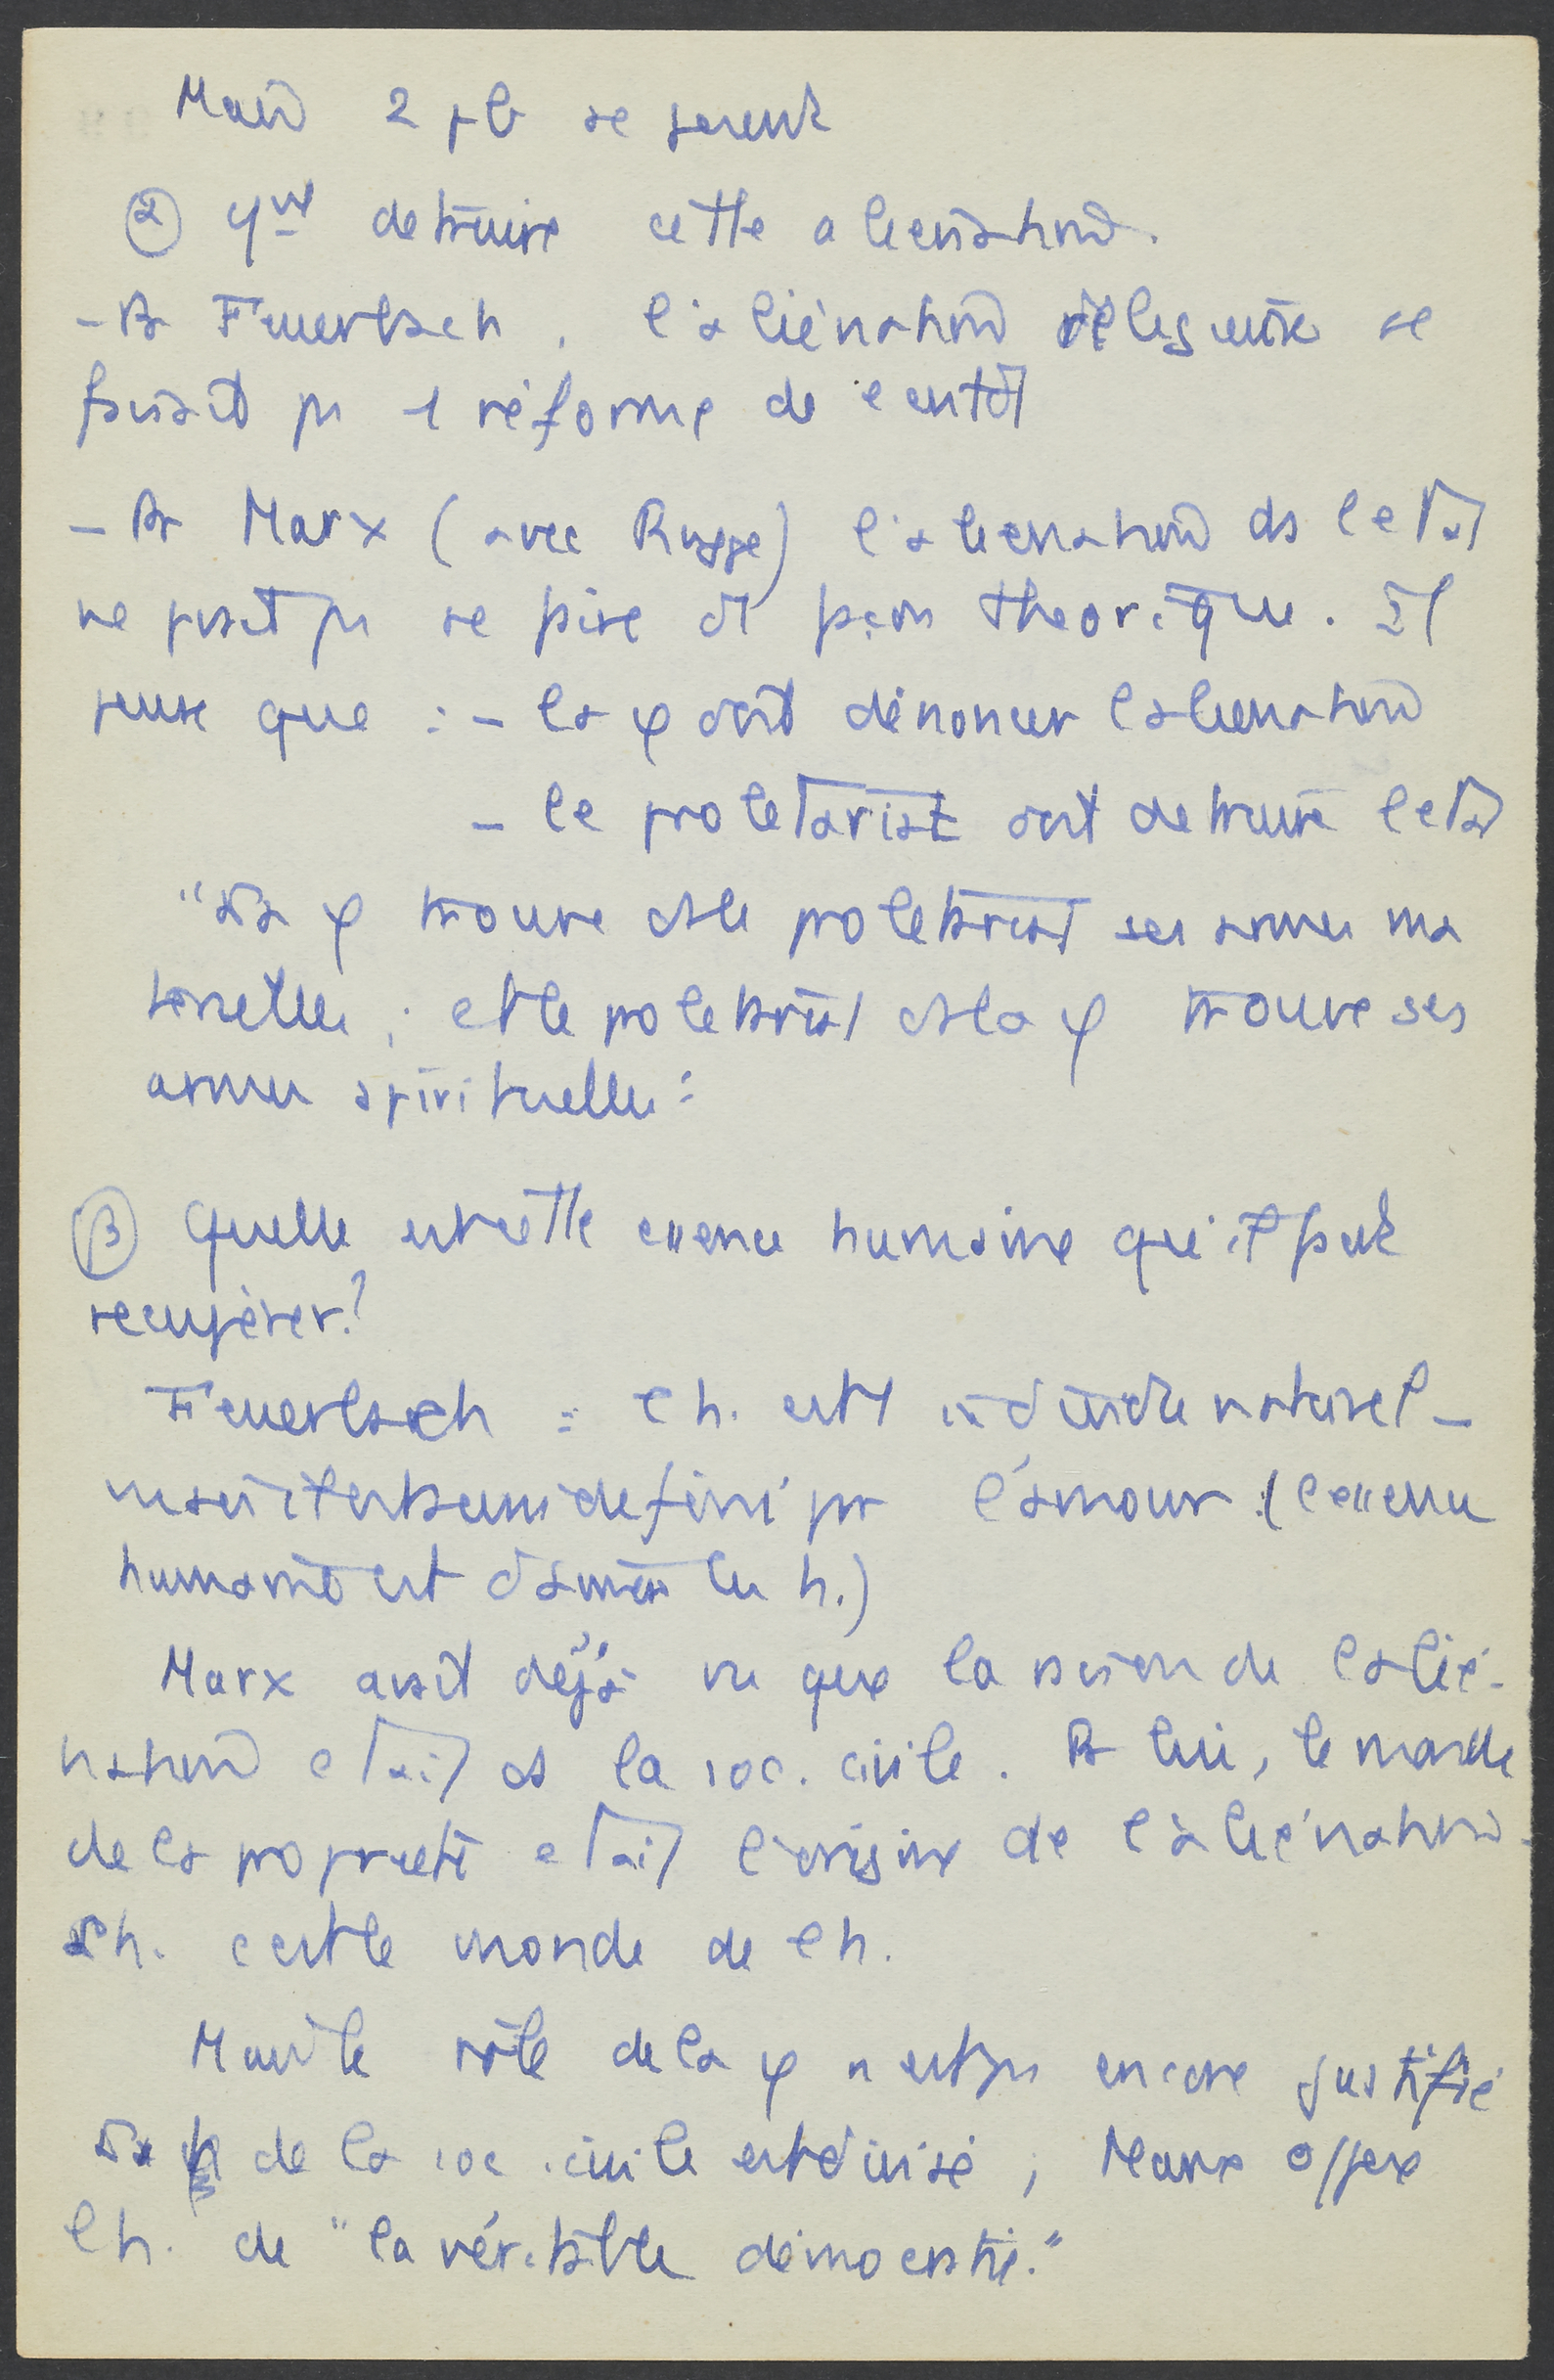 Mais 2 pb se posent
α comt detruire cette alienation.
- Pr Feuerbach, l'aliénation religieuse se
faisait par 1 réforme de l'entt
- Pr Marx (avec Rugge) l'alienation ds l'etat
ne posait pas se faire de façon theorique. Il
pense que : - la φ doit dénoncer l'alienation
- le proletariat doit detruire l'etat
"La φ trouve ds le proletariat ses armes ma
terielles ; et le proletariat ds la φ trouve ses
armes spirituelles"
β Quelle est cette essence humaine qu'il faut
recupérer?
Feuerbach = l'h. est 1 individu naturel -
mais il est aussi defini par l'amour (l'essence
humaine est d'aimer les h.)
Marx avait déjà vu que la raison de l'alié-
nation etait ds la soc. civile. Pr lui, le monde
de la propriete etait l'origine de l'aliénation.
L'h. c'est le monde de l'h.
Mais le rôle de la φ n'est pas encore justifié
L'h de la soc. civile est divisé ; Marx oppose
l'h. de "la véritable démocratie."